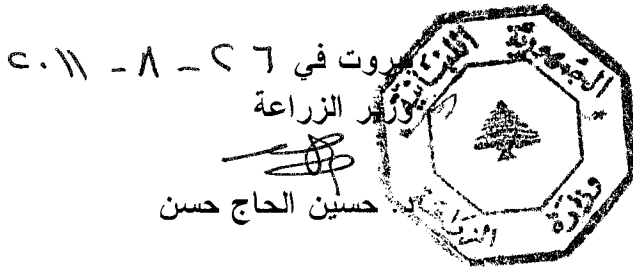 بيروت في ٢٦ - ٨ - ٢٠١١
وزير الزراعة
د. حسين الحاج حسن
الجمهورية اللبنانية
وزارة الزراعة